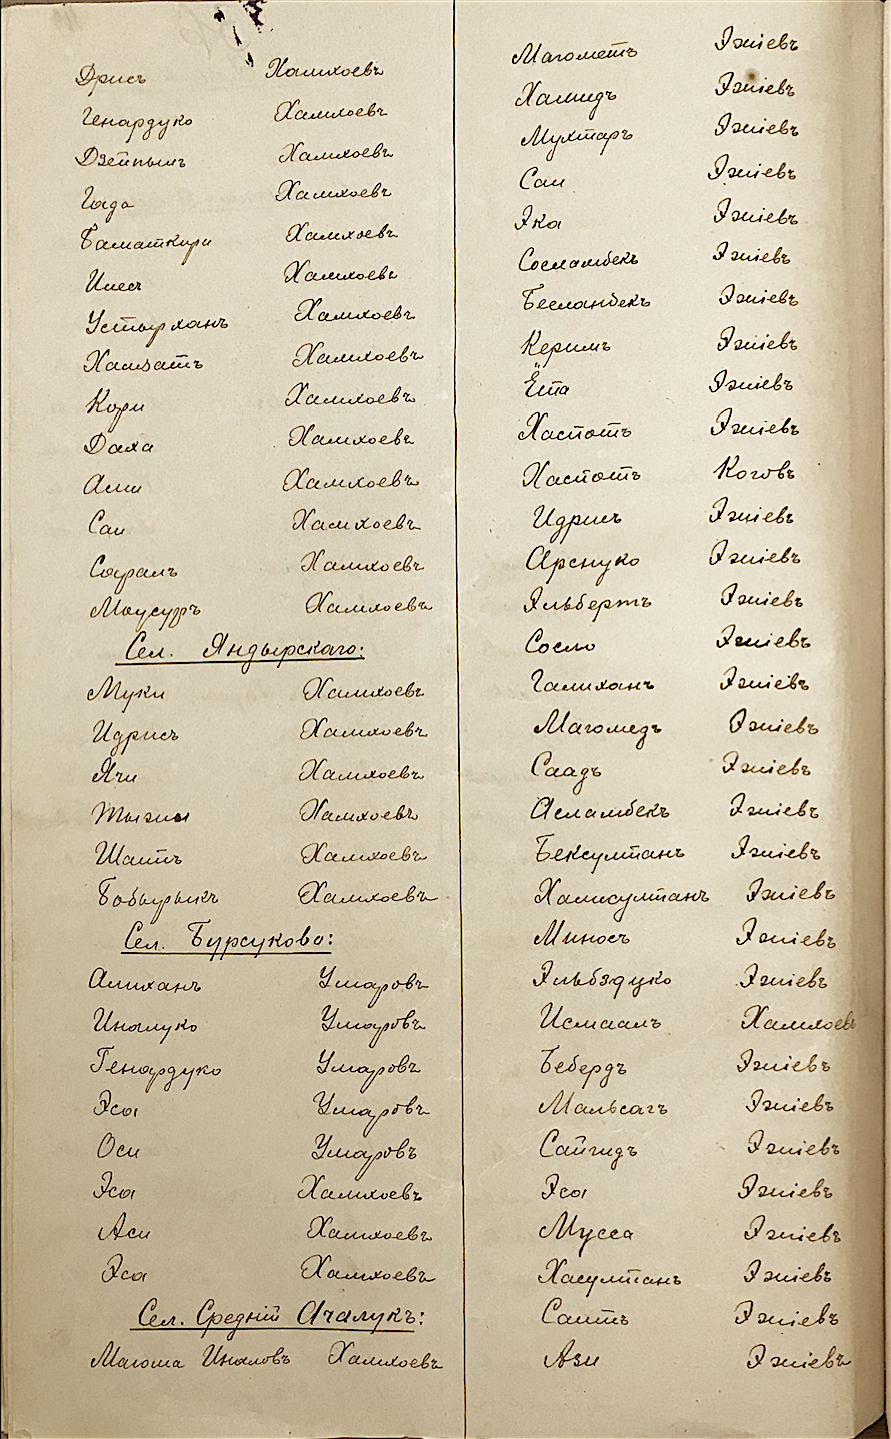 Дрисъ Хамхоевъ
Генардуко Хамхоевъ
Дзейпышъ Хамхоевъ
Гада Хамхоевъ
Баматкири Хамхоевъ
Инесъ Хамхоевъ
Устырханъ Хамхоевъ
Хамзатъ Хамхоевъ
Кори Хамхоевъ
Даха Хамхоевъ
Али Хамхоевъ
Саи Хамхоевъ
Сафралъ Хамхоевъ
Моусуръ Хамхоевъ
Сел. Яндырскаго:
Муки Хамхоевъ
Идрисъ Хамхоевъ
Ячи Хамхоевъ
Тызы Хамхоевъ
Шаитъ Хамхоевъ
Бобырыкъ Хамхоевъ
Сел. Бурсуково:
Алиханъ Умаровъ
Иналуко Умаровъ
Генардуко Умаровъ
Эса Умаровъ
Оси Умаровъ
Эса Хамхоевъ
Аси Хамхоевъ
Эса Хамхоевъ
Сел. Средній Ачалукъ:
Магома Иналовъ Хамхоевъ
Магометъ Эзміевъ
Хамидъ Эзміевъ
Мухтаръ Эзміевъ
Саи Эзміевъ
Эка Эзміевъ
Сосламбекъ Эзміевъ
Бесланбекъ Эзміевъ
Керимъ Эзміевъ
Ёта Эзміевъ
Хаспотъ Эзміевъ
Хаспотъ Коговъ
Идрисъ Эзміевъ
Арснуко Эзміевъ
Эльбертъ Эзміевъ
Сосло Эзміевъ
Галиханъ Эзміевъ
Магомедъ Эзміевъ
Саадъ Эзміевъ
Асламбекъ Эзміевъ
Бексултанъ Эзміевъ
Хамисултанъ Эзміевъ
Миносъ Эзміевъ
Эльбздуко Эзміевъ
Исмаалъ Хамхоевъ
Бебердъ Эзміевъ
Мальсагъ Эзміевъ
Сайгидъ Эзміевъ
Эса Эзміевъ
Мусса Эзміевъ
Хасултанъ Эзміевъ
Саитъ Эзміевъ
Ази Эзміевъ